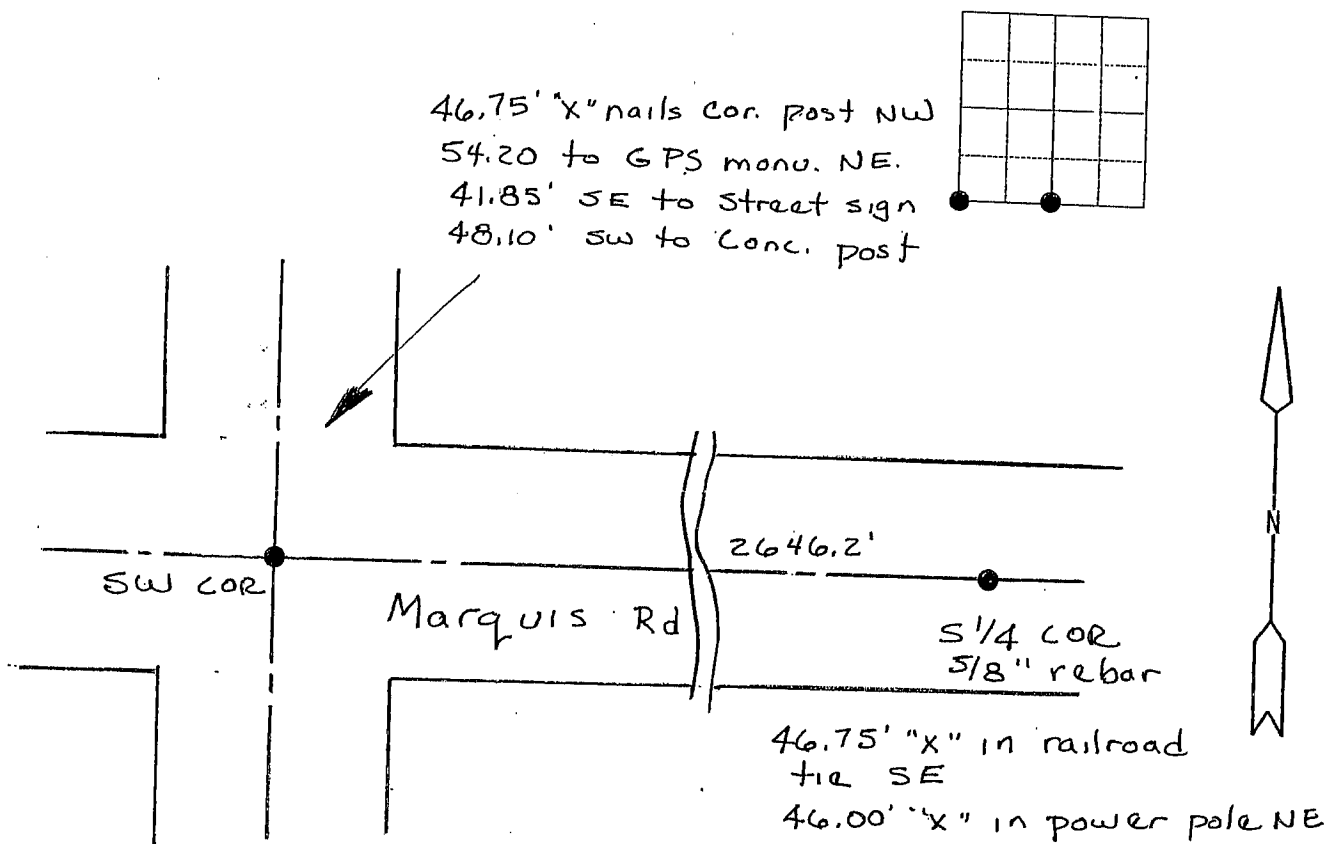 46.75' "X" nails Cor. post NW
54.20 to GPS monu. NE.
41.85' SE to Street sign
48.10' SW to Conc. post
N
2646.2'
SW COR
Marquis Rd
S 1/4 COR
5/8" rebar
46.75' "X" in railroad
tie SE
46.00' "X" in power pole NE